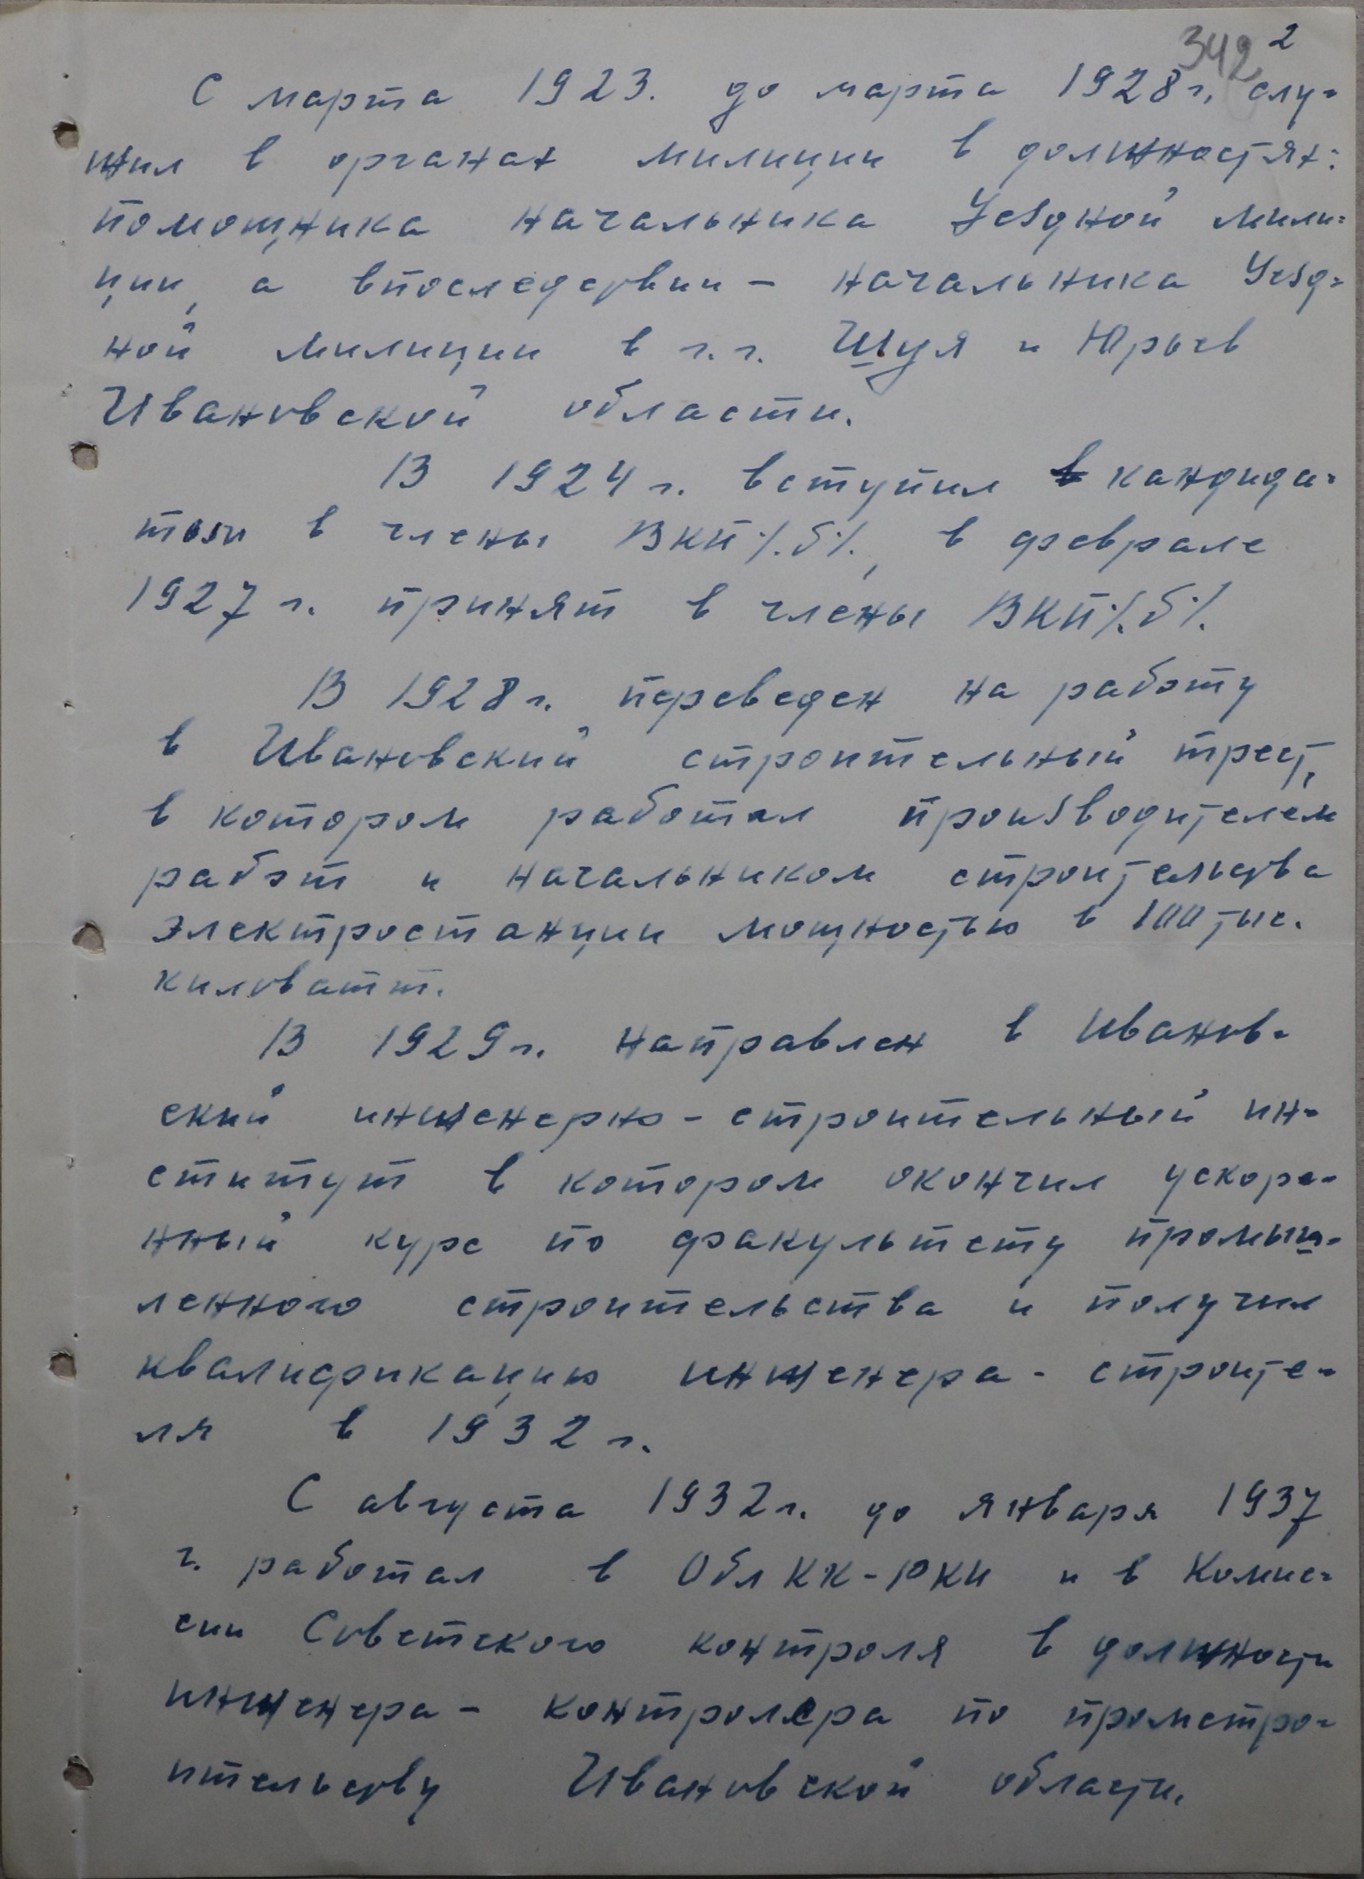 342 2
С марта 1923. до марта 1928 г. слу=
жил в органах милиции в должностях:
помощника начальника Уездной мили=
ции, а впоследствии – начальника Уезд=
ной милиции в г.г. Шуя и Юрьев
Ивановской области.
В 1924 г. вступил кандида=
том в члены ВКП/.б/., в феврале
1927 г. принят в члены ВКП/.б/.
В 1928 г. переведен на работу
в Ивановский строительный трест,
в котором работал производителем
работ и начальником строительства
электростанции мощностью в 100 тыс.
киловатт.
В 1929 г. направлен в Иванов=
ский инженерно-строительный ин=
ститут в котором окончил ускоре=
нный курс по факультету промыш=
ленного строительства и получил
квалификацию инженера-строите=
ля в 1932 г.
С августа 1932 г. до января 1937
г. работал в ОблКК-РКИ и в Комис=
сии Советского контроля в должности
инженера – контролера по промстро=
ительству Ивановской области.